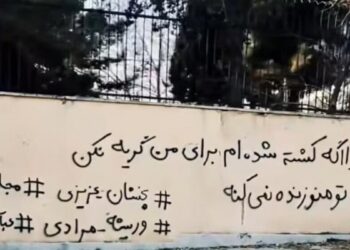 اگه کشته شده ام، برای من گریه نکن
تو منو زنده نمی کنه
#پخشان عزیزی #
#وریشه-مرادی #